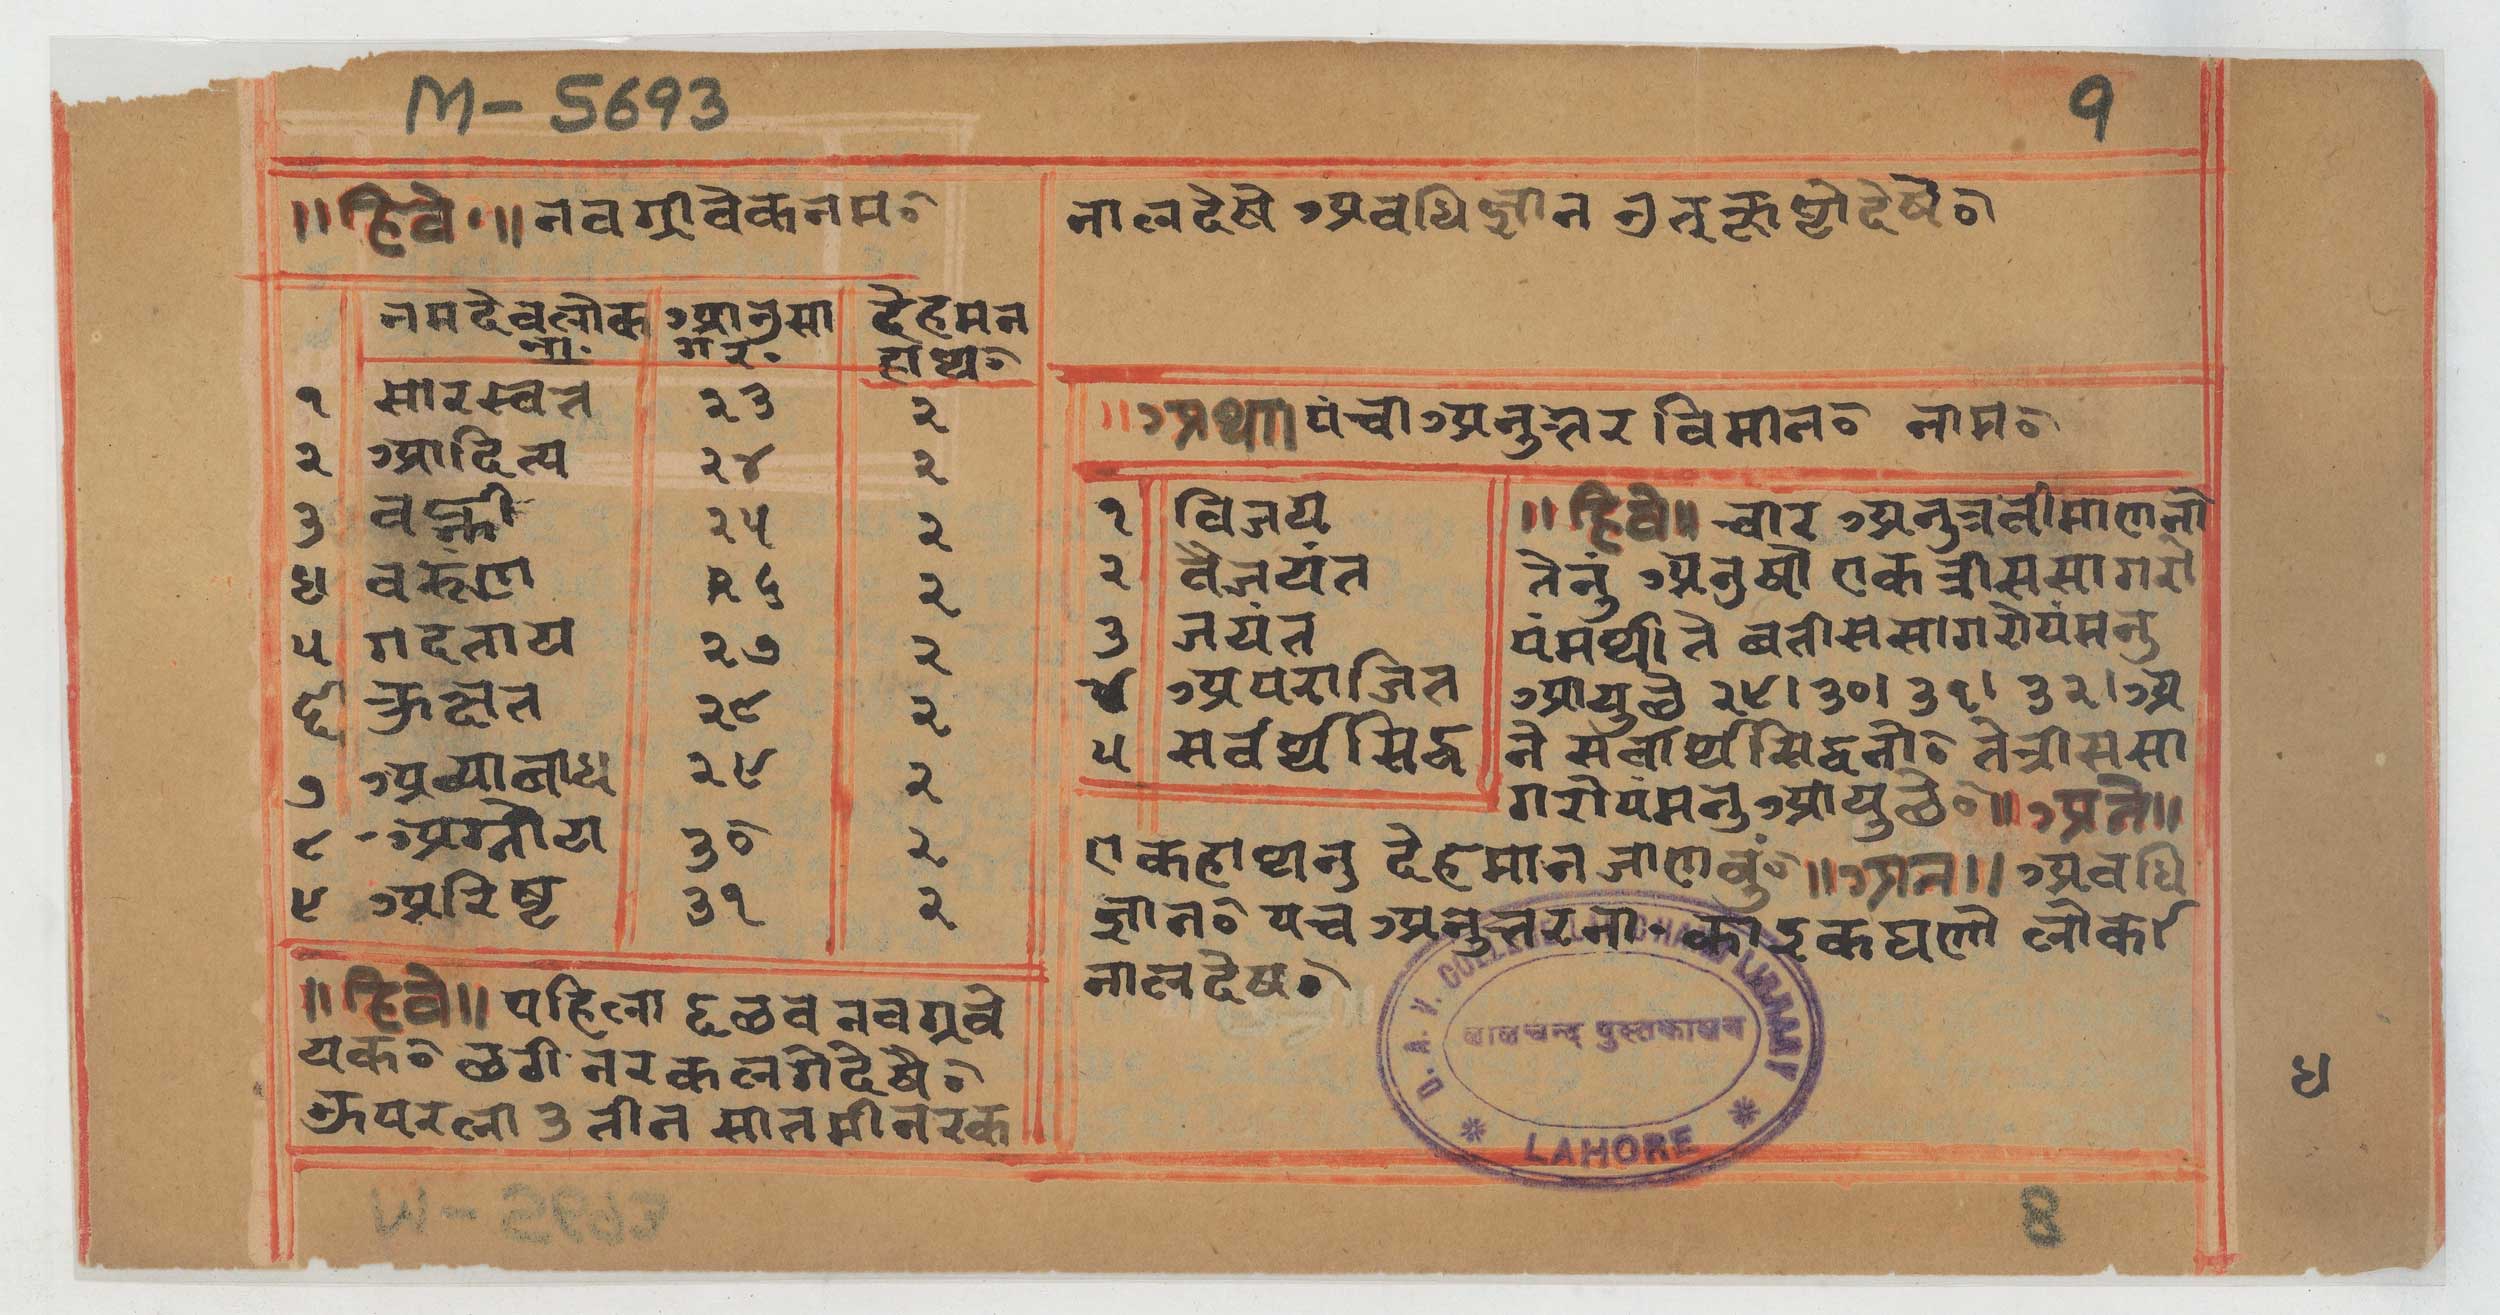 M- 5693
9
॥हिवे॥ नवग्रीवेकनम०
नमदेवलोक आनुसा देहमन
ना. गर. हाथ०
१ सारस्वत २३ २
२ आदित्य २४ २
३ वह्नी २५ २
४ वरुंण २६ २
५ गदतोय २७ २
६ २८ २
७ अव्याबाध २९ २
८ अग्नीय ३० २
९ अरिष्ट ३१ २
॥हिवै॥ पहिला नवग्रवे
यक० छठी नरकलगेदेषै०
ऊपरला ३ तीन सातमी नरक
नालदेषे अवधिज्ञान नु देषै०
॥अथ॥ पंचाअनुत्तर विमान० नाम०
१ विजय
२ वैजयंत
३ जयंत
४ अपराजित
५ सर्वर्थसिद्ध
॥हिवे॥ चार
तेनुं अनुषौ एकत्रीससागरो
पंमथी ते बत्तीससागरोयंमनु
आयुछे २९। ३०। ३१। ३२। अ
ने सर्वार्थसिद्धनी० तेत्रीससा
गरोयंमनु आयुछे०॥ अने॥
एकहाथनु देहमान जाणवुं०॥अन॥ अवधि
ज्ञान० पच अनुत्तरना. काइकघणी लोकनी
नालदेष०
D. A. V. COLLEGE LALCHAND LIBRARY
लालचन्द पुस्तकालय
* LAHORE *
४